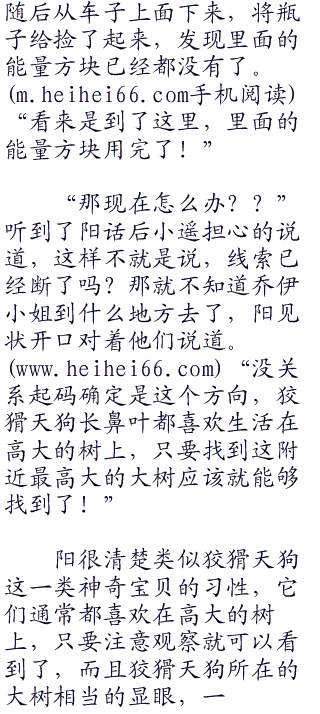 随后从车子上面下来，将瓶
子给捡了起来，发现里面的
能量方块已经都没有了。
(m.heihei66.com手机阅读)
“看来是到了这里，里面的
能量方块用完了！”
“那现在怎么办？？”
听到了阳话后小遥担心的说
道，这样不就是说，线索已
经断了吗？那就不知道乔伊
小姐到什么地方去了，阳见
状开口对着他们说道。
(www.heihei66.com)“没关
系起码确定是这个方向，狡
猾天狗长鼻叶都喜欢生活在
高大的树上，只要找到这附
近最高大的大树应该就能够
找到了！”
阳很清楚类似狡猾天狗
这一类神奇宝贝的习性，它
们通常都喜欢在高大的树
上，只要注意观察就可以看
到了，而且狡猾天狗所在的
大树相当的显眼，一